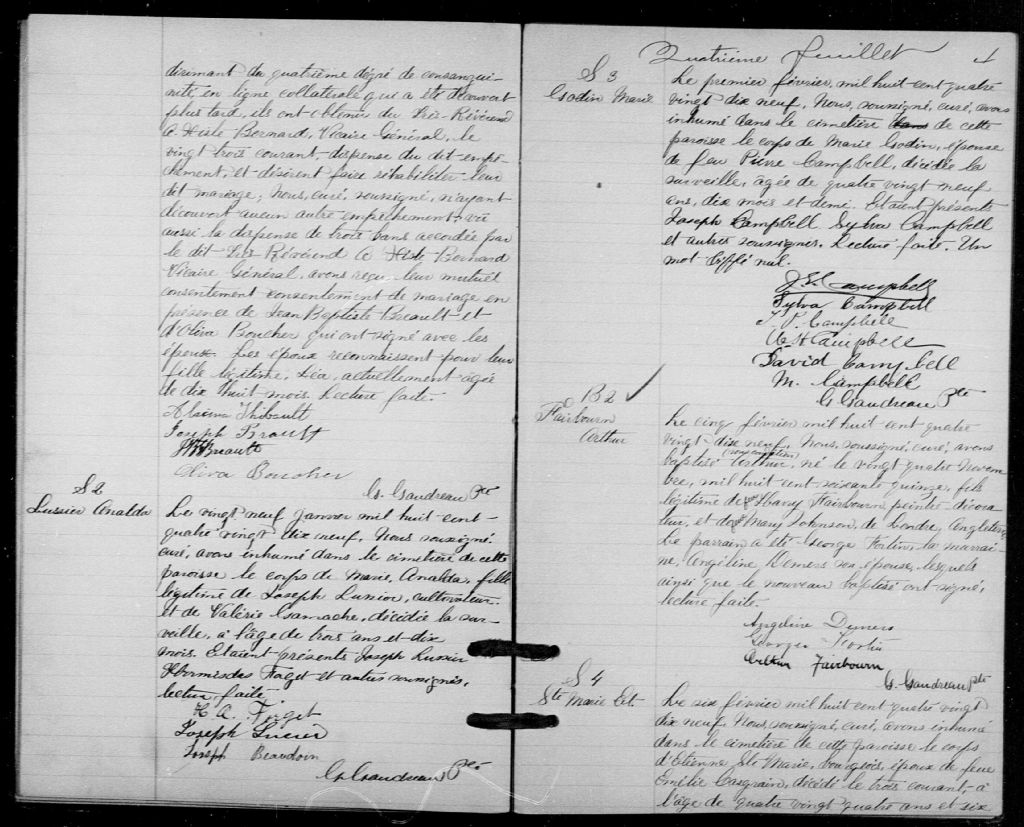 dirimant du quatrième dégré de consangui-
nité en ligne collatérale qui a été découvert
plus tard, ils ont obtenu du Très-Révérend
A. Hisle Bernard, Vicaire Général, le
vingt trois courant, dispense du dit empê-
chement, et désirent faire réhabiliter leur
dit mariage; Nous, curé, soussigné, n'ayant
découvert aucun autre empêchement, vu
aussi la dispense de trois bans accordée par
le dit Très Révérend A Hisle Bernard
Vicaire Général, avons reçu leur mutuel
consentement consentement de mariage en
présence de Jean Baptiste Breault et
d'Oliva Boucher qui ont signé avec les
époux. Les époux reconnaissent pour leur
fille légitime, Léa, actuellement âgée
de dix huit mois. Lecture faite.
Thibault
Joseph Brault
Breault
Oliva Boucher
G. Gaudreau Ptre
S 2
Lussier Analda
Le vingt neuf janvier mil huit cent
quatre vingt dix neuf, Nous soussigné
curé, avons inhumé dans le cimetière de cette
paroisse le corps de Marie, Analda, fille
légitime de Joseph Lussier, cultivateur
et de Valérie Gamache, décédée la sur-
veille, à l'âge de trois ans et dix
mois. Etaient présents Joseph Lussier
Hormisdas Forget et autres soussignés,
lecture faite
H. A. Forget
Joseph Lucier
Joseph Beaudoin
G. Gaudreau Ptre
Quatrième feuillet 4
S 3
Godin Marie
Le premier février, mil huit cent quatre
vingt dix neuf, Nous, soussigné, curé, avons
inhumé dans le cimetière dans de cette
paroisse le corps de Marie Godin, épouse
de feu Pierre Campbell, décédée la
surveille, âgée de quatre vingt neuf
ans, dix mois et demi. Etaient présents
Joseph Campbell Sylva Campbell
et autres soussignés. Lecture faite. Un
mot biffé nul.
J. E. Campbell
Sylva Campbell
J. P. Campbell
A. H Campbell
David Campbell
M. Campbell
G Gaudreau Ptre
B 2
Fairbourn
Arthur
Le cinq février mil huit cent quatre
vingt dix neuf, Nous, soussigné, curé, avons
baptisé (sous condition) Arthur, né le vingt quatre Novem
bre, mil huit cent soixante quinze, fils
légitime de feu Harry Fairbourn peintre-décora-
teur, et de feu Mary Johnson, de Londre, Angleterre
Le parrain a été George Fortin, la marrai-
ne, Angéline Demers son épouse, lesquels
ainsi que le nouveau baptisé ont signé,
lecture faite.
Angeline Demers
Georges Fortin
Arthur Fairbourn
G. Gaudreau Ptre
S 4
Ste Marie Et.
Le six février mil huit cent quatre vingt
dix neuf, Nous, soussigné, curé, avons inhumé
dans le cimetière de cette paroisse le corps
d'Etienne Ste Marie, bourgeois, époux de feue
Emélie Casgrain, décédé le trois courant, à
l'âge de quatre vingt quatre ans et six